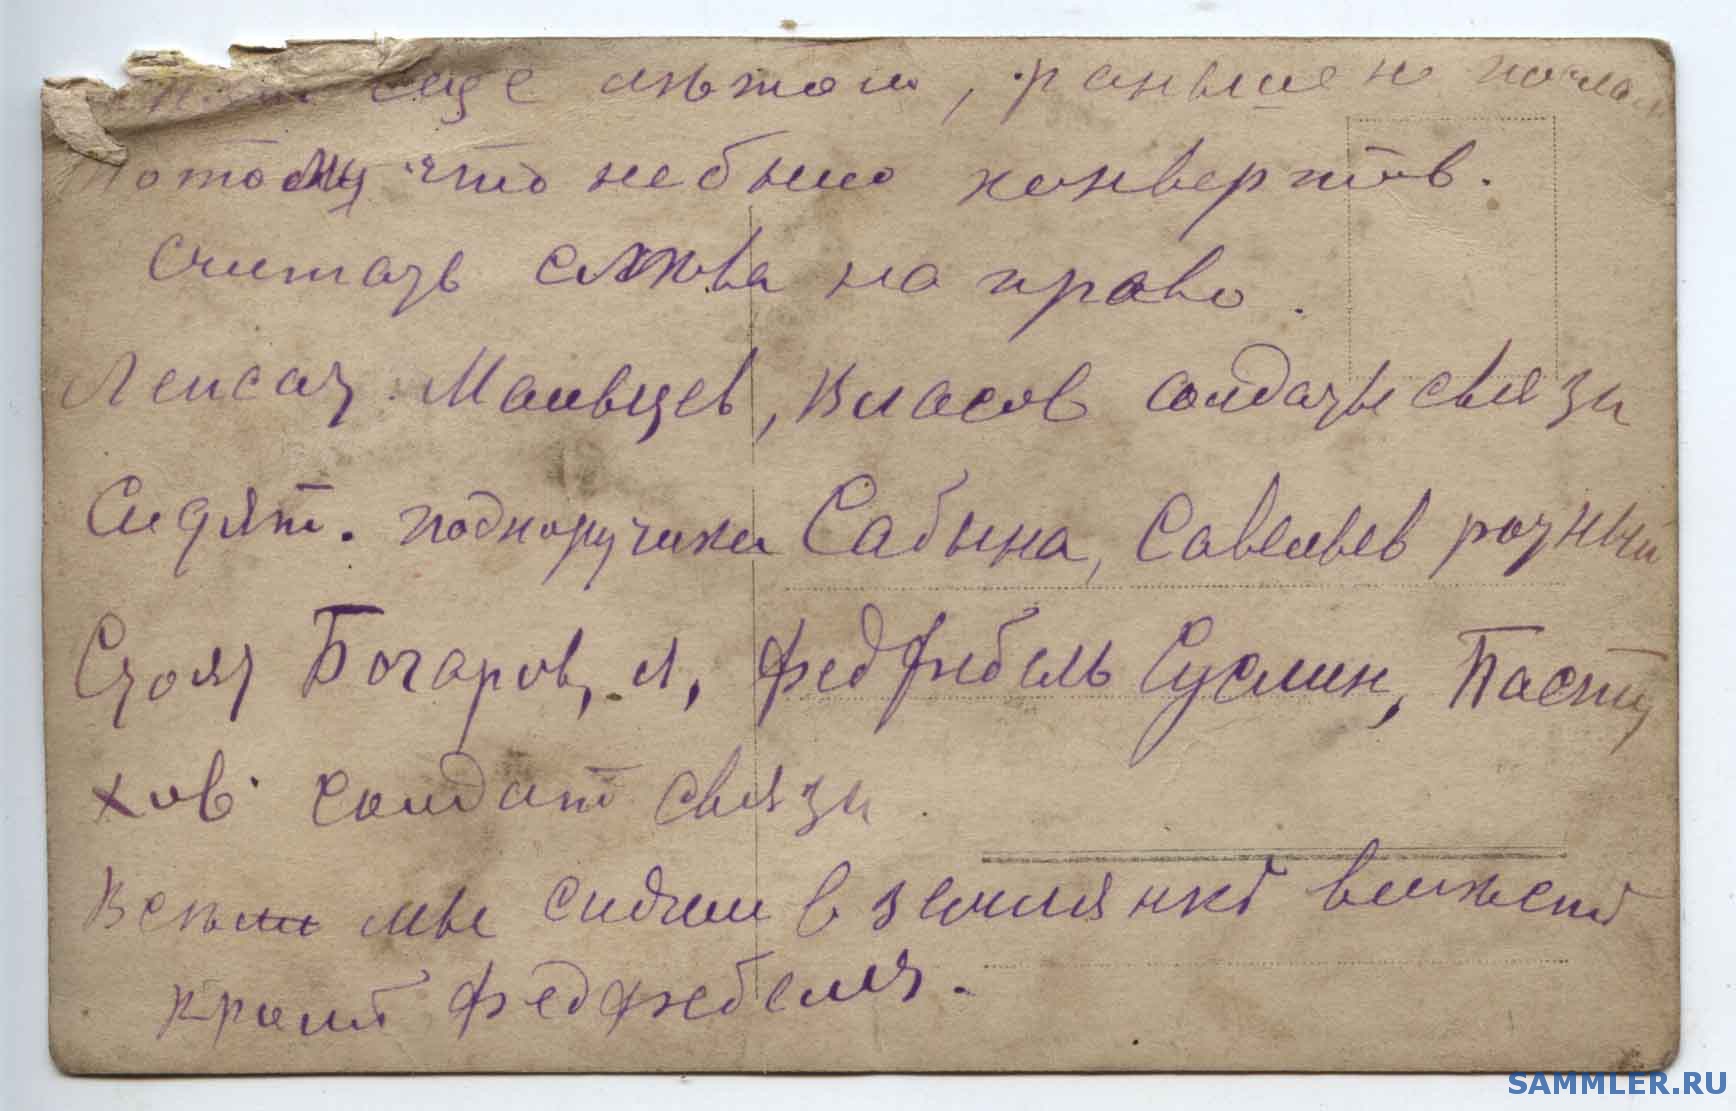 еще лѣтом, раньше н послал
потому что небыло конвертов.
Считать слѣва на право.
Лежат Мальцев, Власов солдаты связи
Сидят. подпоручики Сабына, Савельев ротный
Стоят Бочаров, я, федфебель Суслин, Пасту
хов. солдат связи
мы сидим в землянкѣ вмѣстѣ
кромѣ федфебеля.
SAMMLER.RU